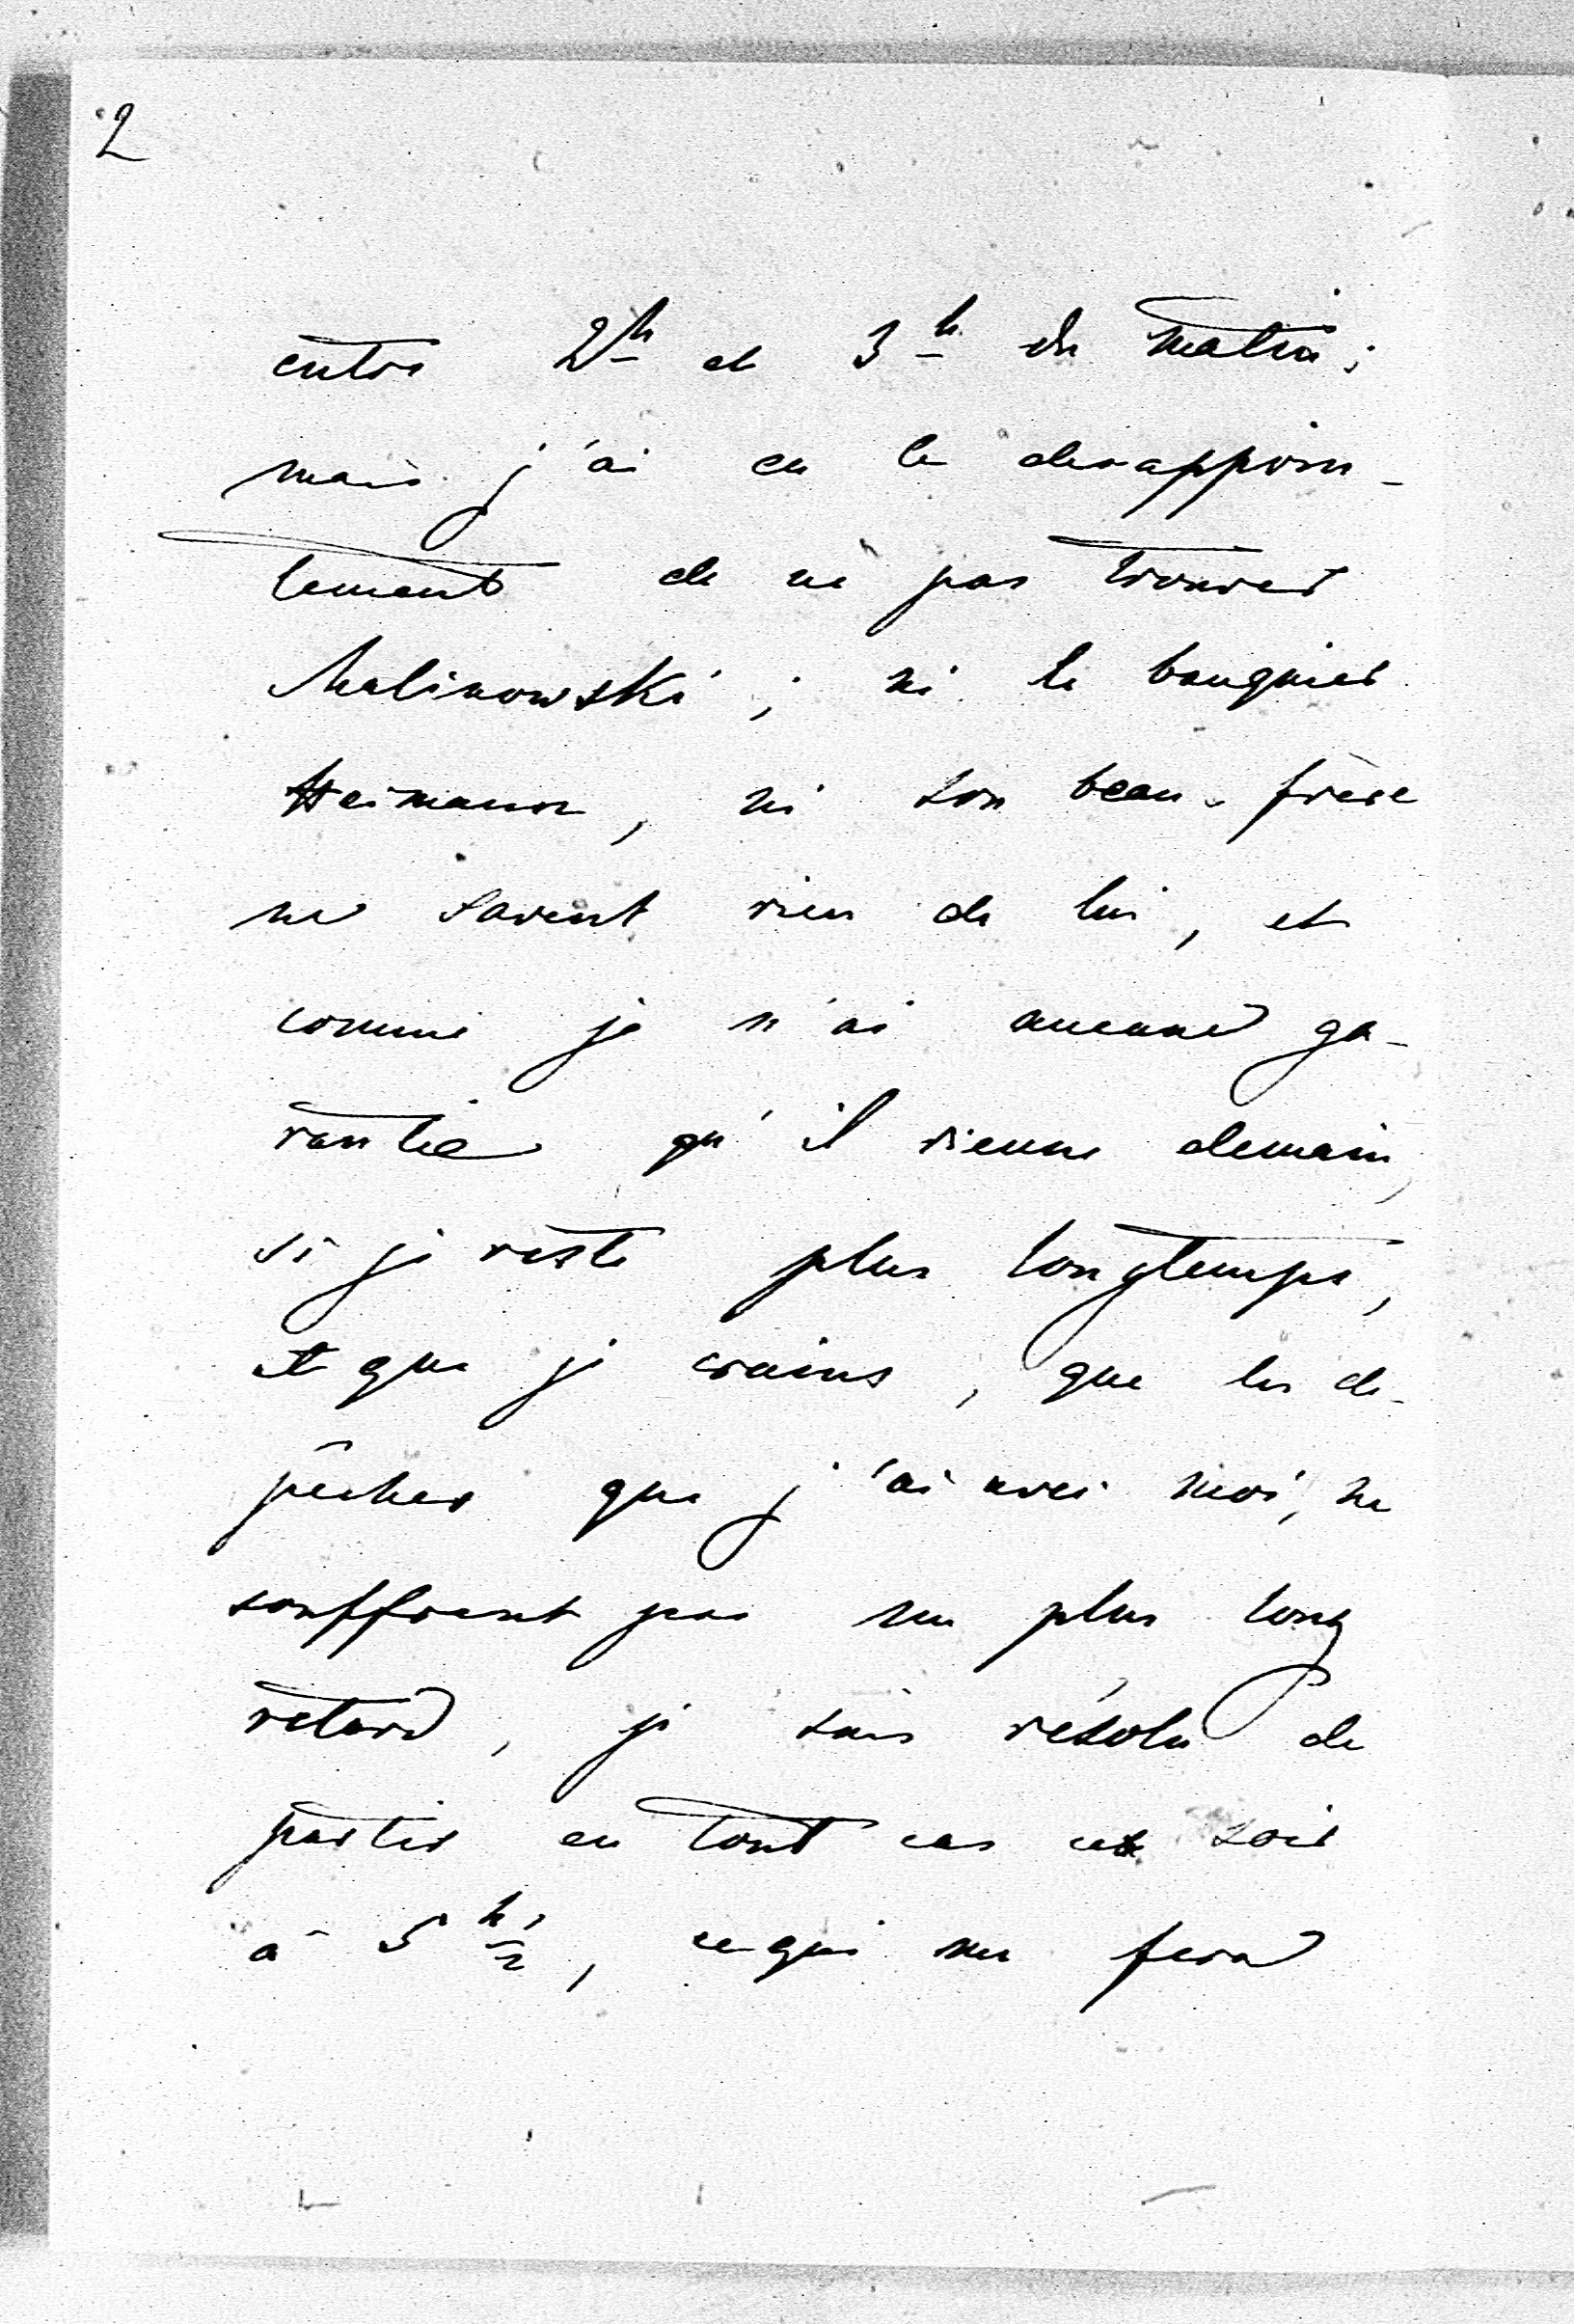 2
entre 2h et 3h du matin;
mais j'ai eu le desappoin-
tement de ne pas trouver
Malinowski; ni le banquier
Heimann, ni son beau-frère
ne savent rien de lui, et
comme je n'ai aucune ga-
rantie qu'il vienne demain,
si je reste plus longtemps,
et que je crains, que les de-
pêches que j'ai avec moi, ne
souffrent pas un plus long
retard, je suis résolu de
partir en tout cas ce soir
à 5 h ½, ce qui me fera